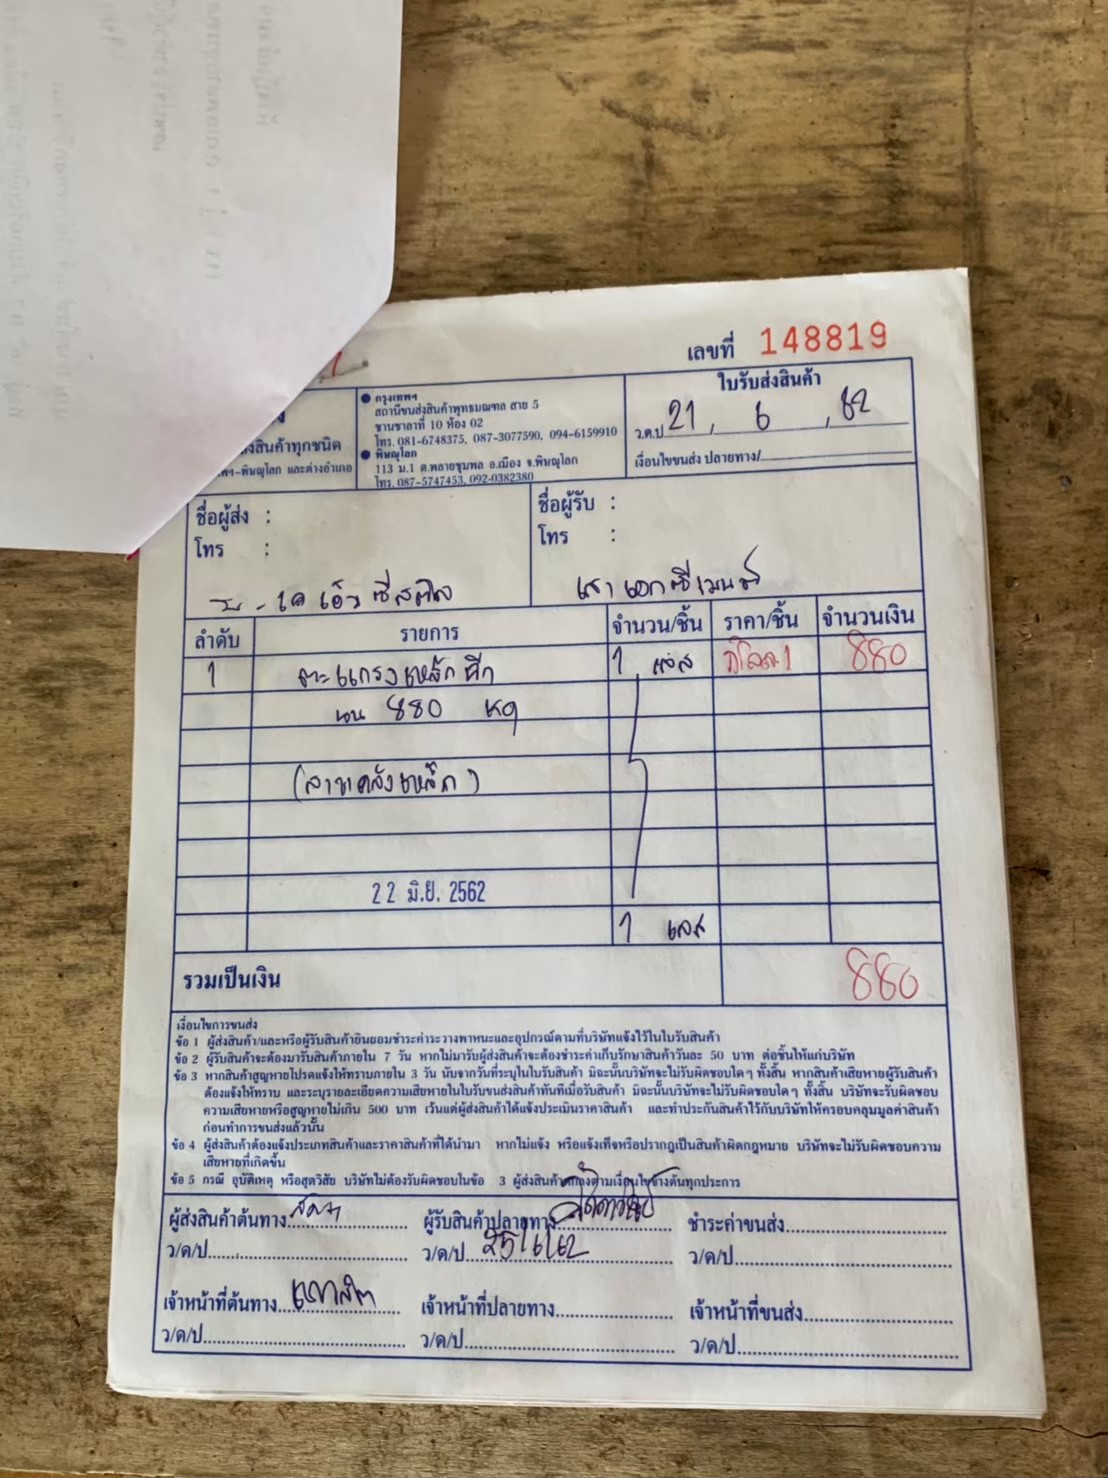 เลขที่ 148819
ใบรับส่งสินค้า
ว.ค.ป 21 , 6 , 62
เงื่อนไขขนส่ง ปลายทาง/
ส่งสินค้าทุกชนิด
-พิษณุโลก และต่างอำเภอ
● กรุงเทพฯ
สถานีขนส่งสินค้าพุทธมณฑล สาย 5
ชานชาลาที่ 10 ห้อง 02
โทร. 081-6748375, 087-3077590, 094-6159910
● พิษณุโลก
113 ม.1 ต.พลายชุมพล อ.เมือง จ.พิษณุโลก
โทร. 087-5747453, 092-0382380
ชื่อผู้ส่ง :
โทร :
เค เอ็ว ซี สตีล
ชื่อผู้รับ :
โทร :
เสาเอกซีเมนต์
ลำดับ รายการ จำนวน/ชิ้น ราคา/ชิ้น จำนวนเงิน
1 ตะแกรงเหล็กฉีก 1 กิโลละ1 880
นน 880 kg
(สาขาคลังเหล็ก)
22 มิ.ย. 2562
1
รวมเป็นเงิน 880
เงื่อนไขการขนส่ง
ข้อ 1 ผู้ส่งสินค้า/และหรือผู้รับสินค้ายินยอมชำระค่าระวางพาหนะและอุปกรณ์ตามที่บริษัทแจ้งไว้ในใบรับสินค้า
ข้อ 2 ผู้รับสินค้าจะต้องมารับสินค้าภายใน 7 วัน หากไม่มารับผู้ส่งสินค้าจะต้องชำระค่าเก็บรักษาสินค้าวันละ 50 บาท ต่อชิ้นให้แก่บริษัท
ข้อ 3 หากสินค้าสูญหายโปรดแจ้งให้ทราบภายใน 3 วัน นับจากวันที่ระบุในใบรับสินค้า มิฉะนั้นบริษัทจะไม่รับผิดชอบใดๆ ทั้งสิ้น หากสินค้าเสียหายผู้รับสินค้า
ต้องแจ้งให้ทราบ และระบุรายละเอียดความเสียหายในใบรับขนส่งสินค้าทันทีเมื่อรับสินค้า มิฉะนั้นบริษัทจะไม่รับผิดชอบใดๆ ทั้งสิ้น บริษัทจะรับผิดชอบ
ความเสียหายหรือสูญหายไม่เกิน 500 บาท เว้นแต่ผู้ส่งสินค้าได้แจ้งประเมินราคาสินค้า และทำประกันสินค้าไว้กับบริษัทให้ครอบคลุมมูลค่าสินค้า
ก่อนทำการขนส่งแล้วนั้น
ข้อ 4 ผู้ส่งสินค้าต้องแจ้งประเภทสินค้าและราคาสินค้าที่ได้นำมา หากไม่แจ้ง หรือแจ้งเท็จหรือปรากฏเป็นสินค้าผิดกฎหมาย บริษัทจะไม่รับผิดชอบความ
เสียหายที่เกิดขึ้น
ข้อ 5 กรณี อุบัติเหตุ หรือสุดวิสัย บริษัทไม่ต้องรับผิดชอบในข้อ 3 ผู้ส่งสินค้าตกลงตามเงื่อนไขข้างต้นทุกประการ
ผู้ส่งสินค้าต้นทาง ผู้รับสินค้าปลายทาง ชำระค่าขนส่ง
ว/ด/ป ว/ด/ป 25/6/62 ว/ด/ป
เจ้าหน้าที่ต้นทาง เจ้าหน้าที่ปลายทาง เจ้าหน้าที่ขนส่ง
ว/ด/ป ว/ด/ป ว/ด/ป